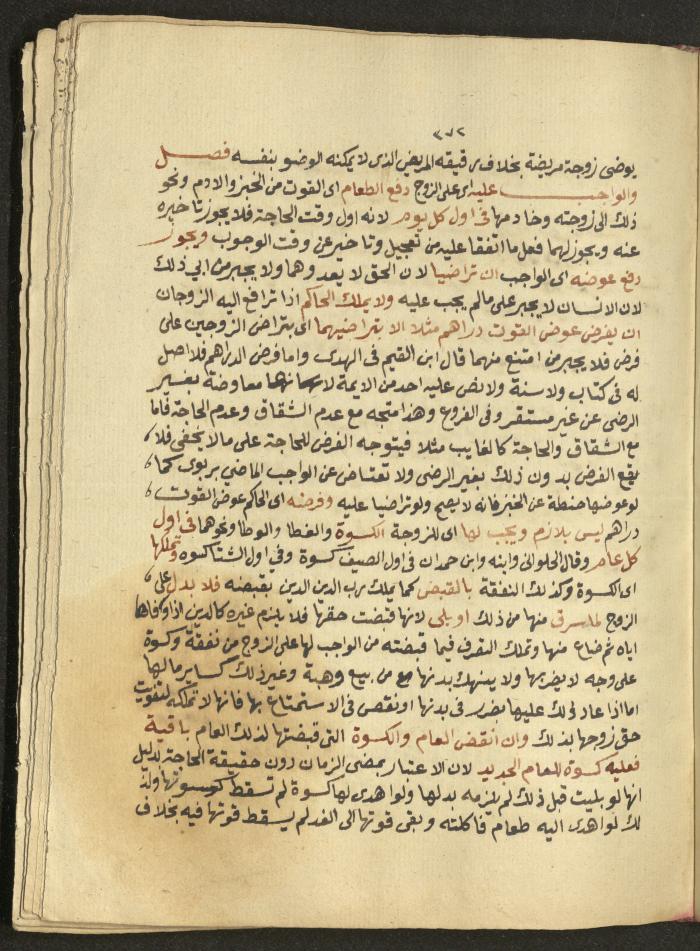 ٣٧٢
يوضى زوجة مريضة بخلاف رقيقه المريض الذى لا يمكنه الوضو بنفسه فصل
والواجب عليه اى على الزوج دفع الطعام اى القوت من الخبز والادم ونحو
ذلك الى زوجته وخادمها فى اول كل يوم لانه اول وقت الحاجة فلا يجوز تاخيره
عنه ويجوز لهما فعل ما اتفقا عليه من تعجيل وتاخير عن وقت الوجوب ويجوز
دفع عوضه اى الواجب ان تراضيا لان الحق لا يعدوهما ولا يجبر من ابي ذلك
لان الانسان لا يجبر على ما لم يجب عليه ولا يملك الحاكم اذا ترافع اليه الزوجان
ان يفرض عوض القوت دراهم مثلا الا بتراضيهما اى بتراضى الزوجين على
فرض فلا يجبر من امتنع منهما قال ابن القيم فى الهدى واما فرض الدراهم فلا اصل
له فى كتاب ولا سنة ولا نص عليه احد من الايمة لانها معاوضة بغير
الرضى عن غير مستقر وفى الفروع وهذا متجه مع عدم الشقاق وعدم الحاجة فاما
مع الشقاق والحاجة كالغايب مثلا فيتوجه الفرض للحاجة على ما لا يخفى فلا
يقع الفرض بدون ذلك بغير الرضى ولا تعتاض عن الواجب الماضي بربوى كما
لو عوضها حنطة عن الخبز فانه لا يصح ولو تراضيا عليه وفرضه اى الحاكم عوض القوت
دراهم ليس بلازم ويجب لها اى للزوجة الكسوة والغطا والوطا ونحوهما فى اول
كل عام وقال الحلوانى وابنه وابن حمدان فى اول الصيف كسوة وفى اول الشتا كسوه وتملكها
اى الكسوة وكذلك النفقة بالقبض كما يملك رب الدين الدين بقبضه فلا بدل على
الزوج لما سرق منها من ذلك او بلى لانها قبضت حقها فلا يلزم غيره كالدين اذا وفاها
اياه ثم ضاع منها وتملك التصرف فيما قبضته من الواجب لها على الزوج من نفقة وكسوة
على وجه لا يضر بها ولا ينهك بدنها من بيع وهبة وغير ذلك كساير مالها
اما اذا عاد ذلك عليها بضرر فى بدنها او نقص فى الاستمتاع بها فانها لا تملكه لتفويت
حق زوجها بذلك وان انقضى العام والكسوة التى قبضتها لذلك العام باقية
فعليه كسوة للعام الجديد لان الاعتبار بمضى الزمان دون حقيقة الحاجة بدليل
انها لو بليت قبل ذلك لم يلزمه بدلها ولو اهدى لها كسوة لم تسقط كسوتها وكذ
لك لو اهدى اليه طعام فاكلته وبقى قوتها الى الغد لم يسقط قوتها فيه بخلاف